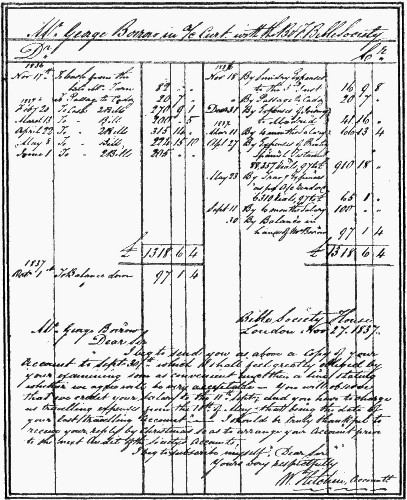 Mr. George Borrow in a/c Curt with the B & F Bible Society
Dr. Cr.
1836
Nov 17th To Cash from the
late Mr. Tarn 82 " "
" To Passage to Cadiz 20 7 "
1837
Feby 20 To Cash 2 Bills 270 9 1
March 13 To " Bill 200 " 5
April 22 To " 2 Bills 315 14 "
May 8 To " Bill 224 15 10
June 1 To " 2 Bills 205 " "
£ 1318 6 4
1837
Oct 1st To Balance down 97 1 4
1836
Nov 18 By Sundry Expenses
to the Inst 16 9 8
" By Passage to Cadiz 20 7 "
Dec 31 By Expenses
to Madrid 41 16 "
1837
Mar 11 By 4 months Salary 66 13 4
Apl 27 By Expenses of Printg
Spanish Testament
910 18 "
May 23 By Travg Expenses
as per a/c
65 1 "
Sept 11 By 6 months Salary 100 " "
30 By Balance in
hands of Mr Borrow 97 1 4
£ 1318 6 4
Bible Society House
London Nov 27. 1837.
Mr. George Borrow
Dear Sir
I beg to send you as above a copy of your
Account to Sept. 30th which I shall feel greatly obliged by
your examining soon as convenient and the a line stating
whether we agree will be very acceptable — You will observe
that we credit your Salary to the 11th Sept. and you have to charge
us travelling expenses from the 18th of May - that being the date of
your last travelling account — I should be truly thankful to
receive your reply by Christmas so as to arrange your account prior
to the next Audit of the Society's Accounts.
I beg to subscribe myself, Dear Sir
Yours very respectfully
W. Hitchin, Accountt